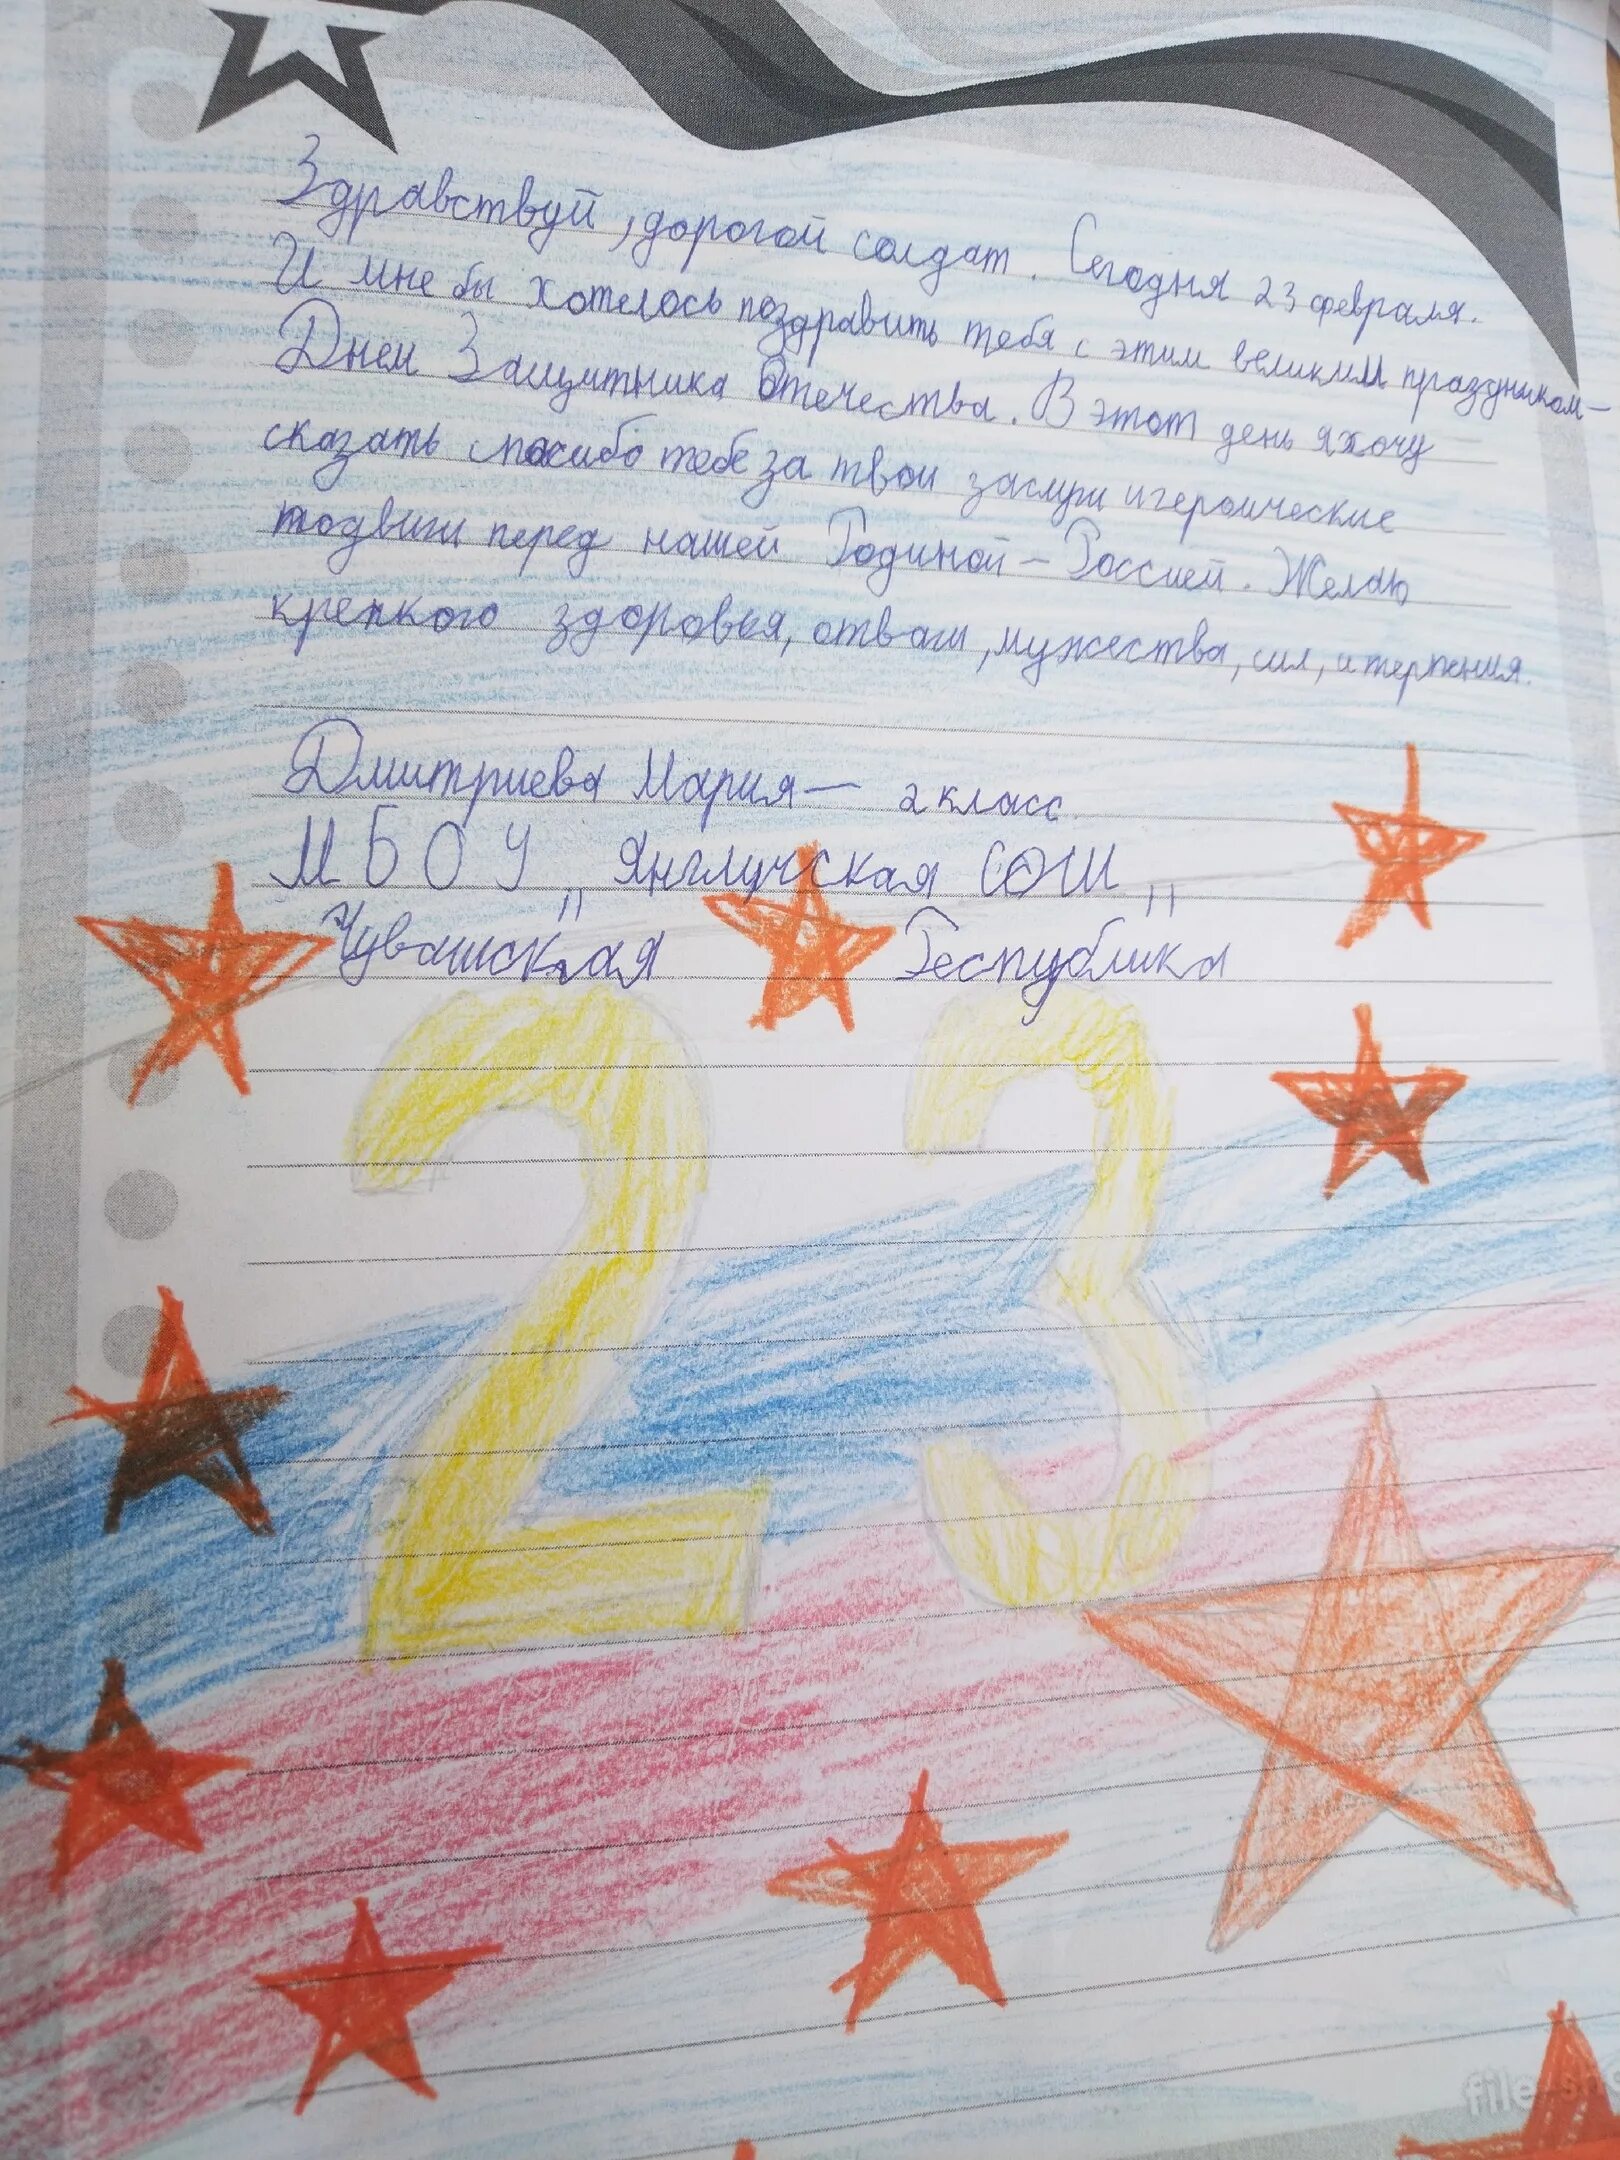 Здравствуй, дорогой солдат. Сегодня 23 февраля.
И мне бы хотелось поздравить тебя с этим великим праздником—
Днем Защитника Отечества. В этот день я хочу
сказать спасибо тебе за твои заслуги и героические
подвиги перед нашей Родиной – Россией. Желаю
крепкого здоровья, отваги, мужества, сил, и терпения.
Дмитриева Мария — 2 класс
МБОУ "Янглычская СОШ"
Чувашская Республика
23